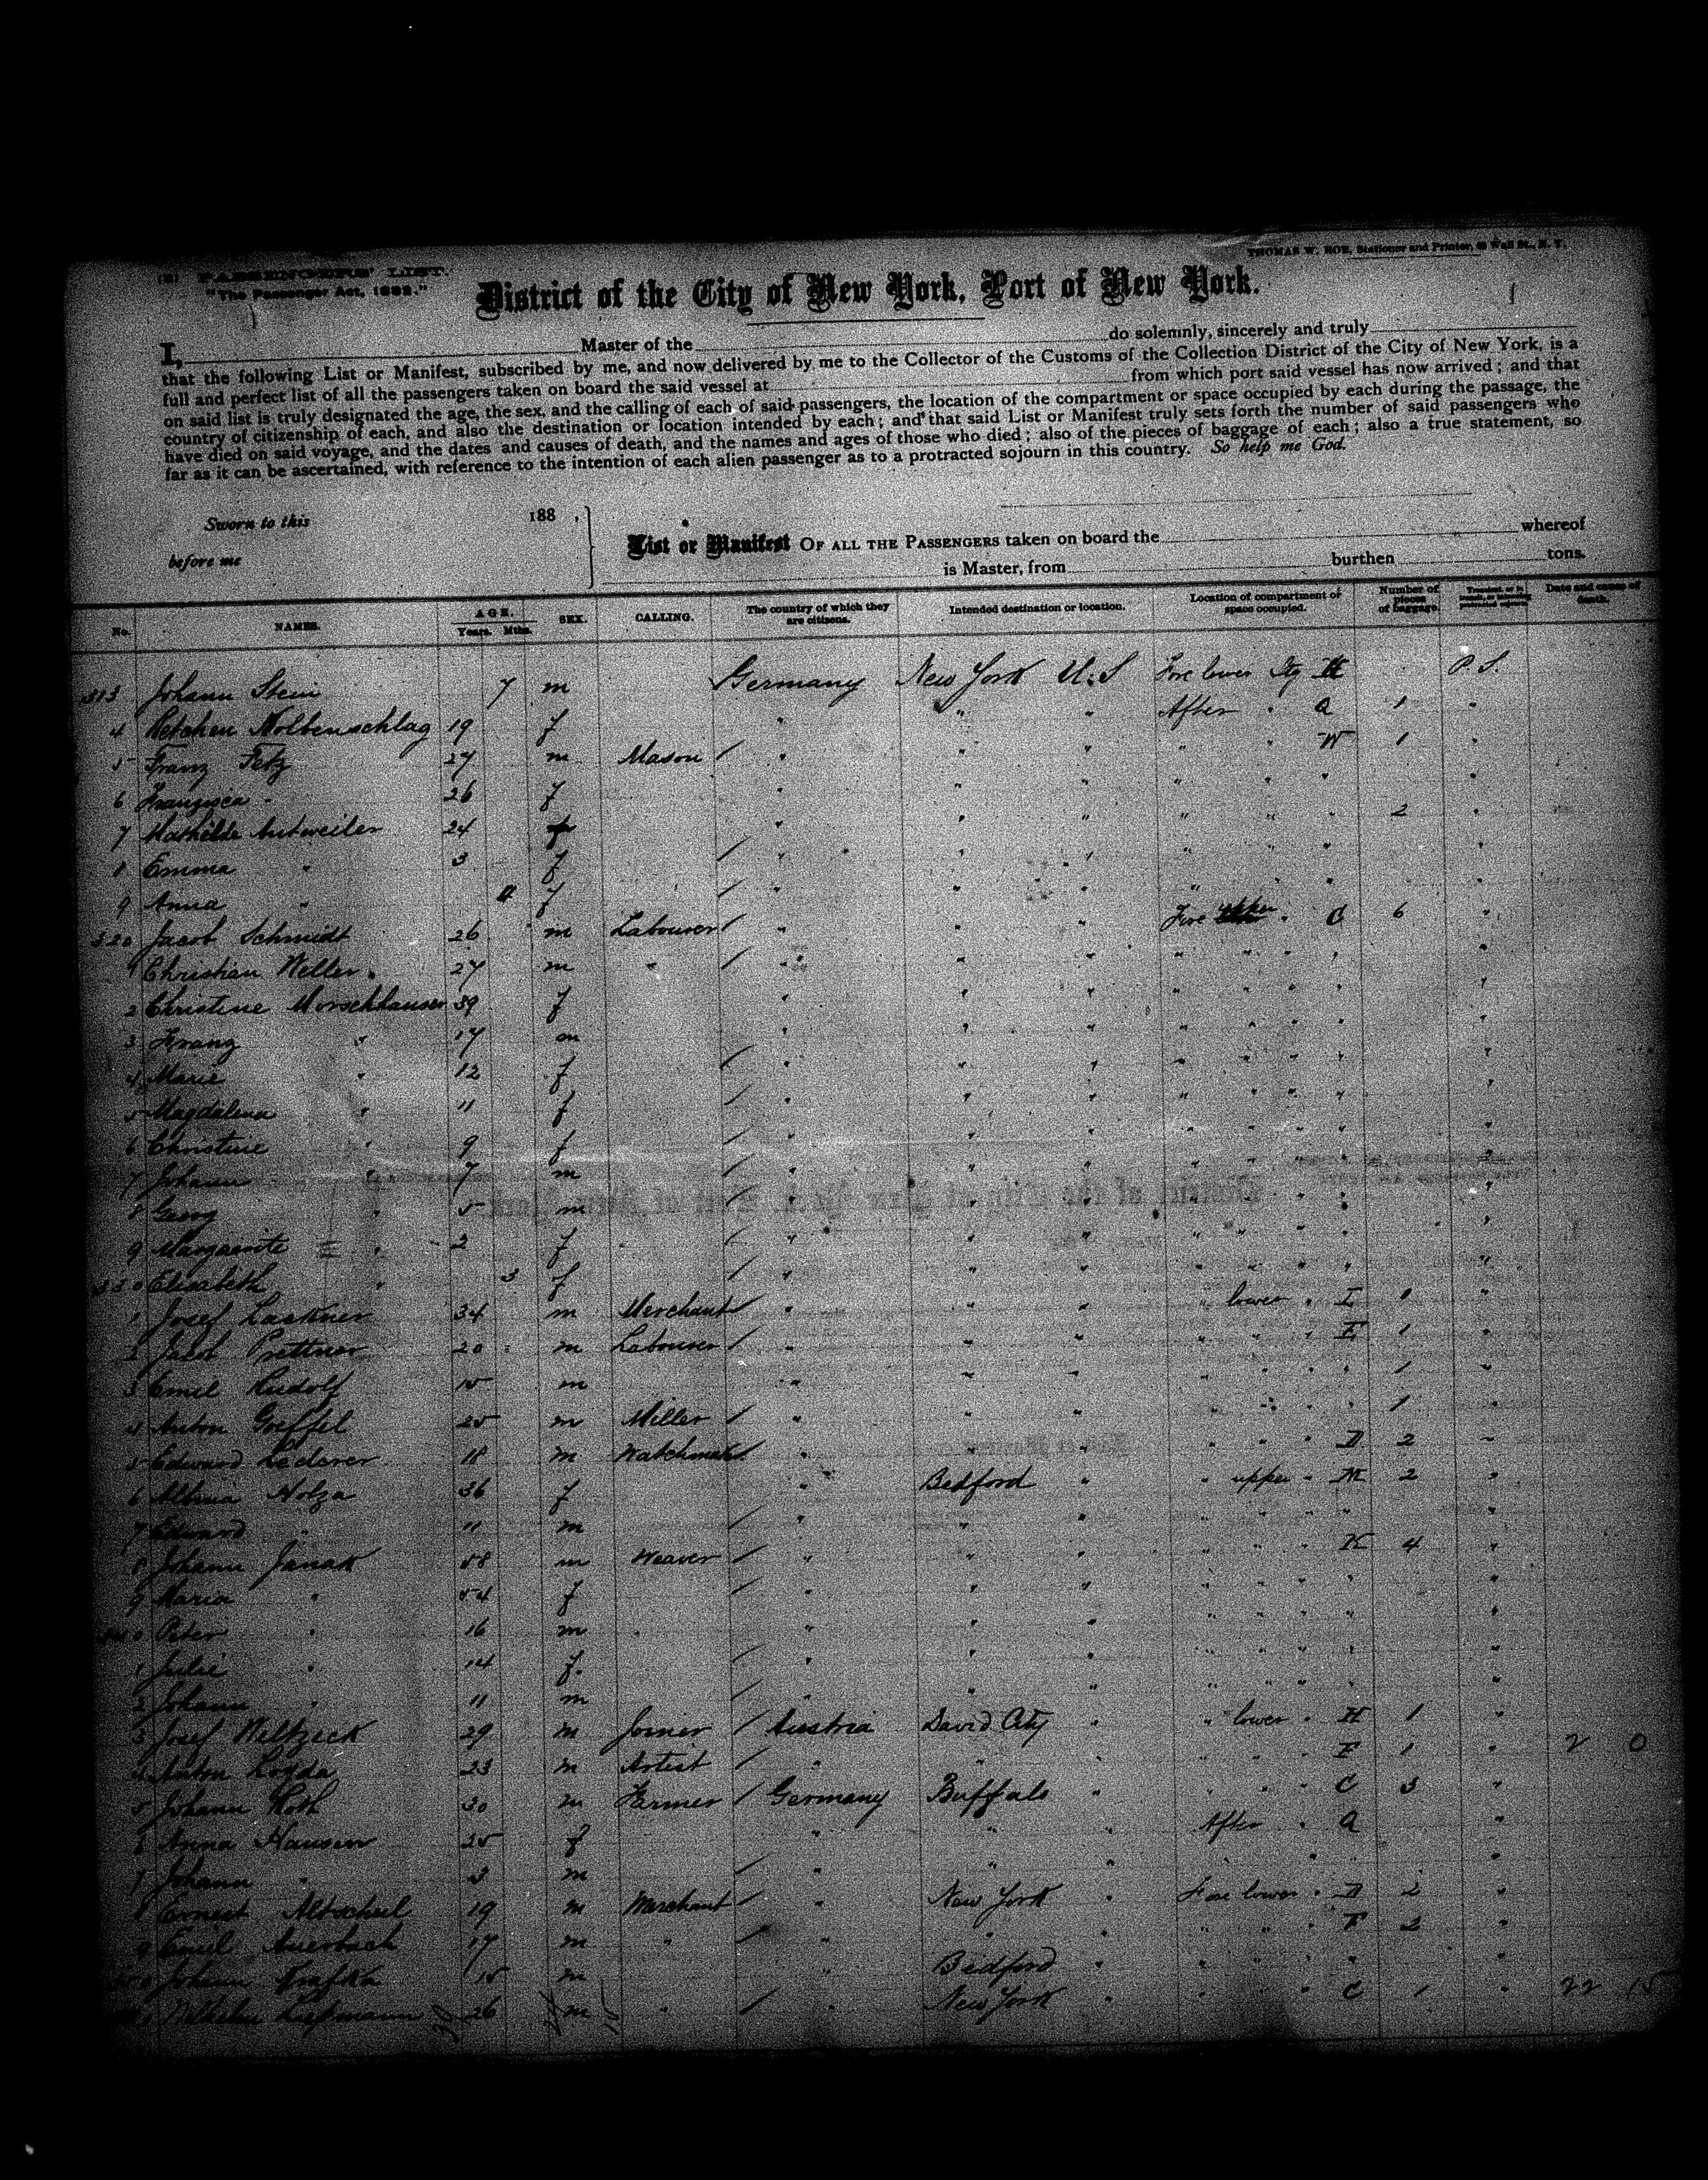 PASSENGERS' LIST.
"The Passenger Act, 1882."
THOMAS W. ROE, Stationer and Printer, Wall St., N. Y.
District of the City of New York, Port of New York.
I, Master of the do solemnly, sincerely and truly
that the following List or Manifest, subscribed by me, and now delivered by me to the Collector of the Customs of the Collection District of the City of New York, is a
full and perfect list of all the passengers taken on board the said vessel at from which port said vessel has now arrived; and that
on said list is truly designated the age, the sex, and the calling of each of said passengers, the location of the compartment or space occupied by each during the passage, the
country of citizenship of each, and also the destination or location intended by each; and that said List or Manifest truly sets forth the number of said passengers who
have died on said voyage, and the dates and causes of death, and the names and ages of those who died; also of the pieces of baggage of each; also a true statement, so
far as it can be ascertained, with reference to the intention of each alien passenger as to a protracted sojourn in this country. So help me God.
Sworn to this 188 ,
before me
List or Manifest OF ALL THE PASSENGERS taken on board the whereof
is Master, from burthen tons.
No. NAMES. AGE. Years. Mths. SEX. CALLING. The country of which they are citizens. Intended destination or location. Location of compartment of space occupied. Number of pieces of baggage. Date and cause of death.
313 Johann Stein 7 m Germany New York U.S Fore lower Stg H P.S.
4 19 f " " " After " A 1 "
5 Franz Fetz 27 m Mason / " " " " " W 1 "
6 Franzisca " 26 f " " " " " " "
7 Mathilde Antweiler 24 f " " " " " " 2 "
8 Emma " 3 f / " " " " " " "
9 Anna " f / " " " " " " "
320 Jacob Schmidt 26 m Labourer / " " " Fore upper " C 6 "
1 Christian Weller 27 m " / " " " " " " " "
2 Christine Morschhauser 39 f " " " " " " " "
3 Franz " 17 m " " " " " " " "
4 Marie " 12 f / " " " " " " " "
5 Magdalena " 11 f / " " " " " " " "
6 Christine " 9 f / " " " " " " " "
7 Johann " 7 m / " " " " " " " "
8 Georg " 5 m / " " " " " " " "
9 Margarite " 2 f / " " " " " " " "
330 Elisabeth " 3 f / " " " " " " " "
1 Josef Laskner 34 m Merchant / " " " " lower " I 1 "
2 Jacob Prettner 20 m Labourer / " " " " " " E 1 "
3 Emil Rudolf 15 m " " " " " " " 1 "
4 Anton Greffel 25 m Miller / " " " " " " " 1 "
5 Edward Lederer 18 m Watchmak / " " " " " " D 2 "
6 Albina Holza 36 f " Bedford " " upper " M 2 "
7 Edward " 11 m / " " " " " " " "
8 Johann Janak 58 m Weaver / " " " " " " K 4 "
9 Maria " 54 f / " " " " " " " "
340 Peter " 16 m " " " " " " " "
1 Julie " 14 f. / " " " " " " " "
2 Johann " 11 m / " " " " " " " "
3 Josef Weltzeck 29 m Joiner / Austria David City " " lower " H 1 "
4 Anton Loyda 23 m Artist / " " " " " " F 1 " 2 0
5 Johann Roth 30 m Farmer / Germany Buffalo " " " " C 3 "
6 Anna Hansen 25 f " " " After " A "
7 Johann " 3 m / " " " " " "
8 Ernest Altschul 19 m Merchant / " New York " Fore lower " D 2 "
9 Emil Auerbach 17 m " / " " " " " " F 2 "
350 Johann Krafka 15 m " Bedford " " " " " "
1 Wilhelm 26 m " / " New York " " " " C 1 " 22 15